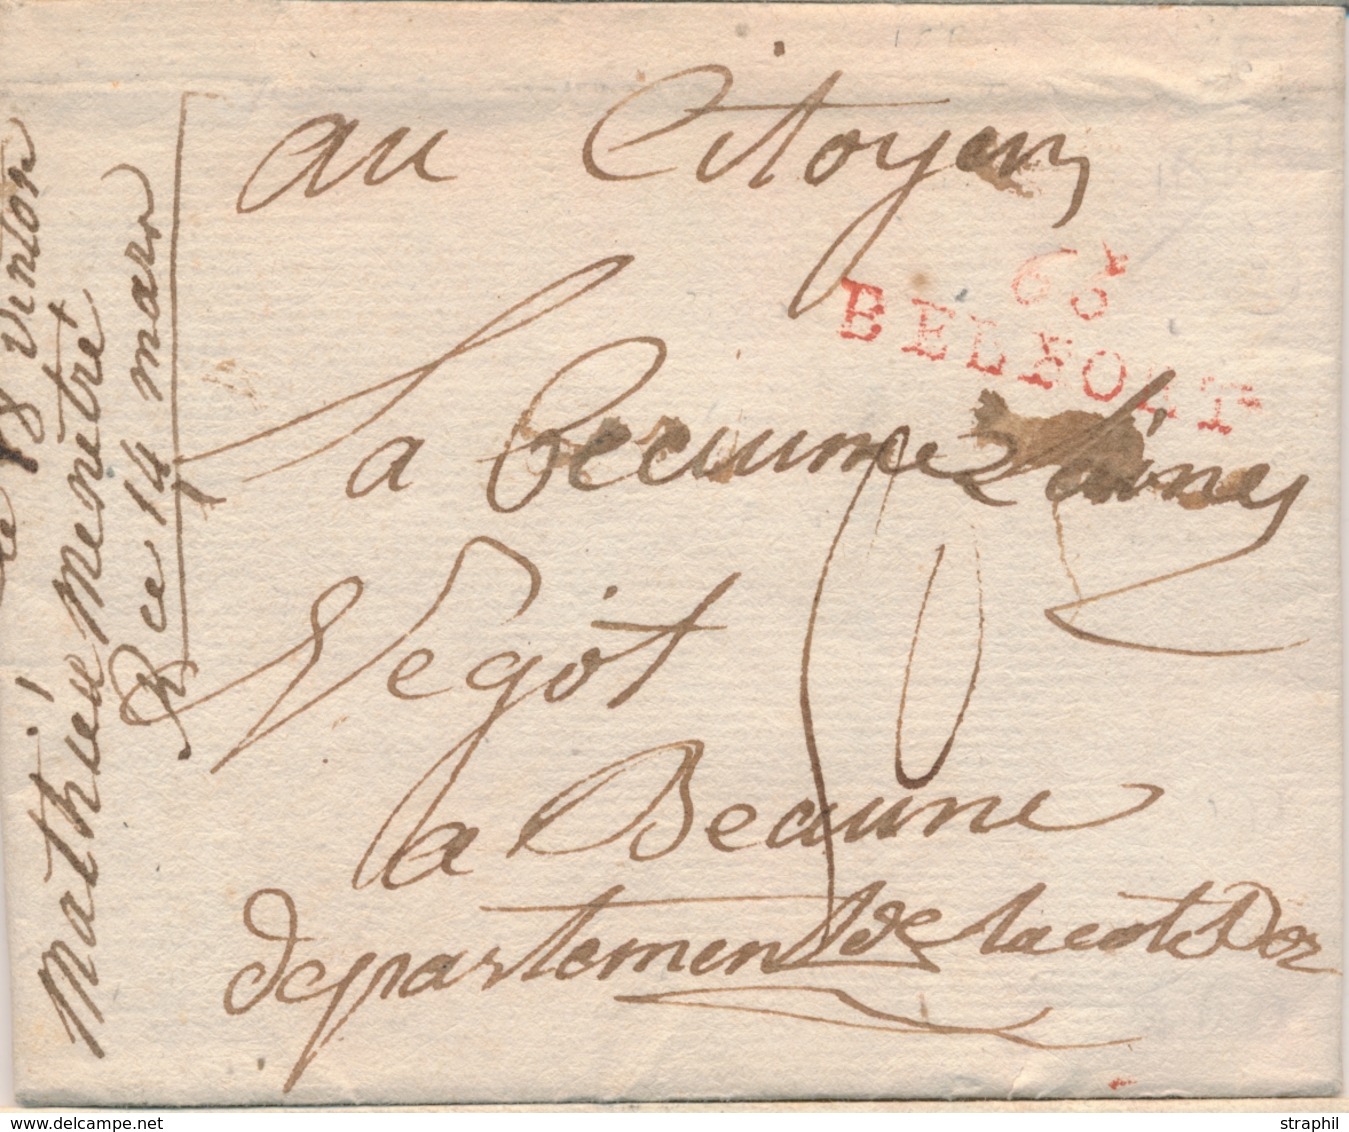 au Citoyen
65
BELFORT
La Beaume L'ainé
Végot
a Beaune
departement de la cote Dor
le 18 venton
Mathieu Menetré
Rce 14 mars
www.delcampe.net
straphil